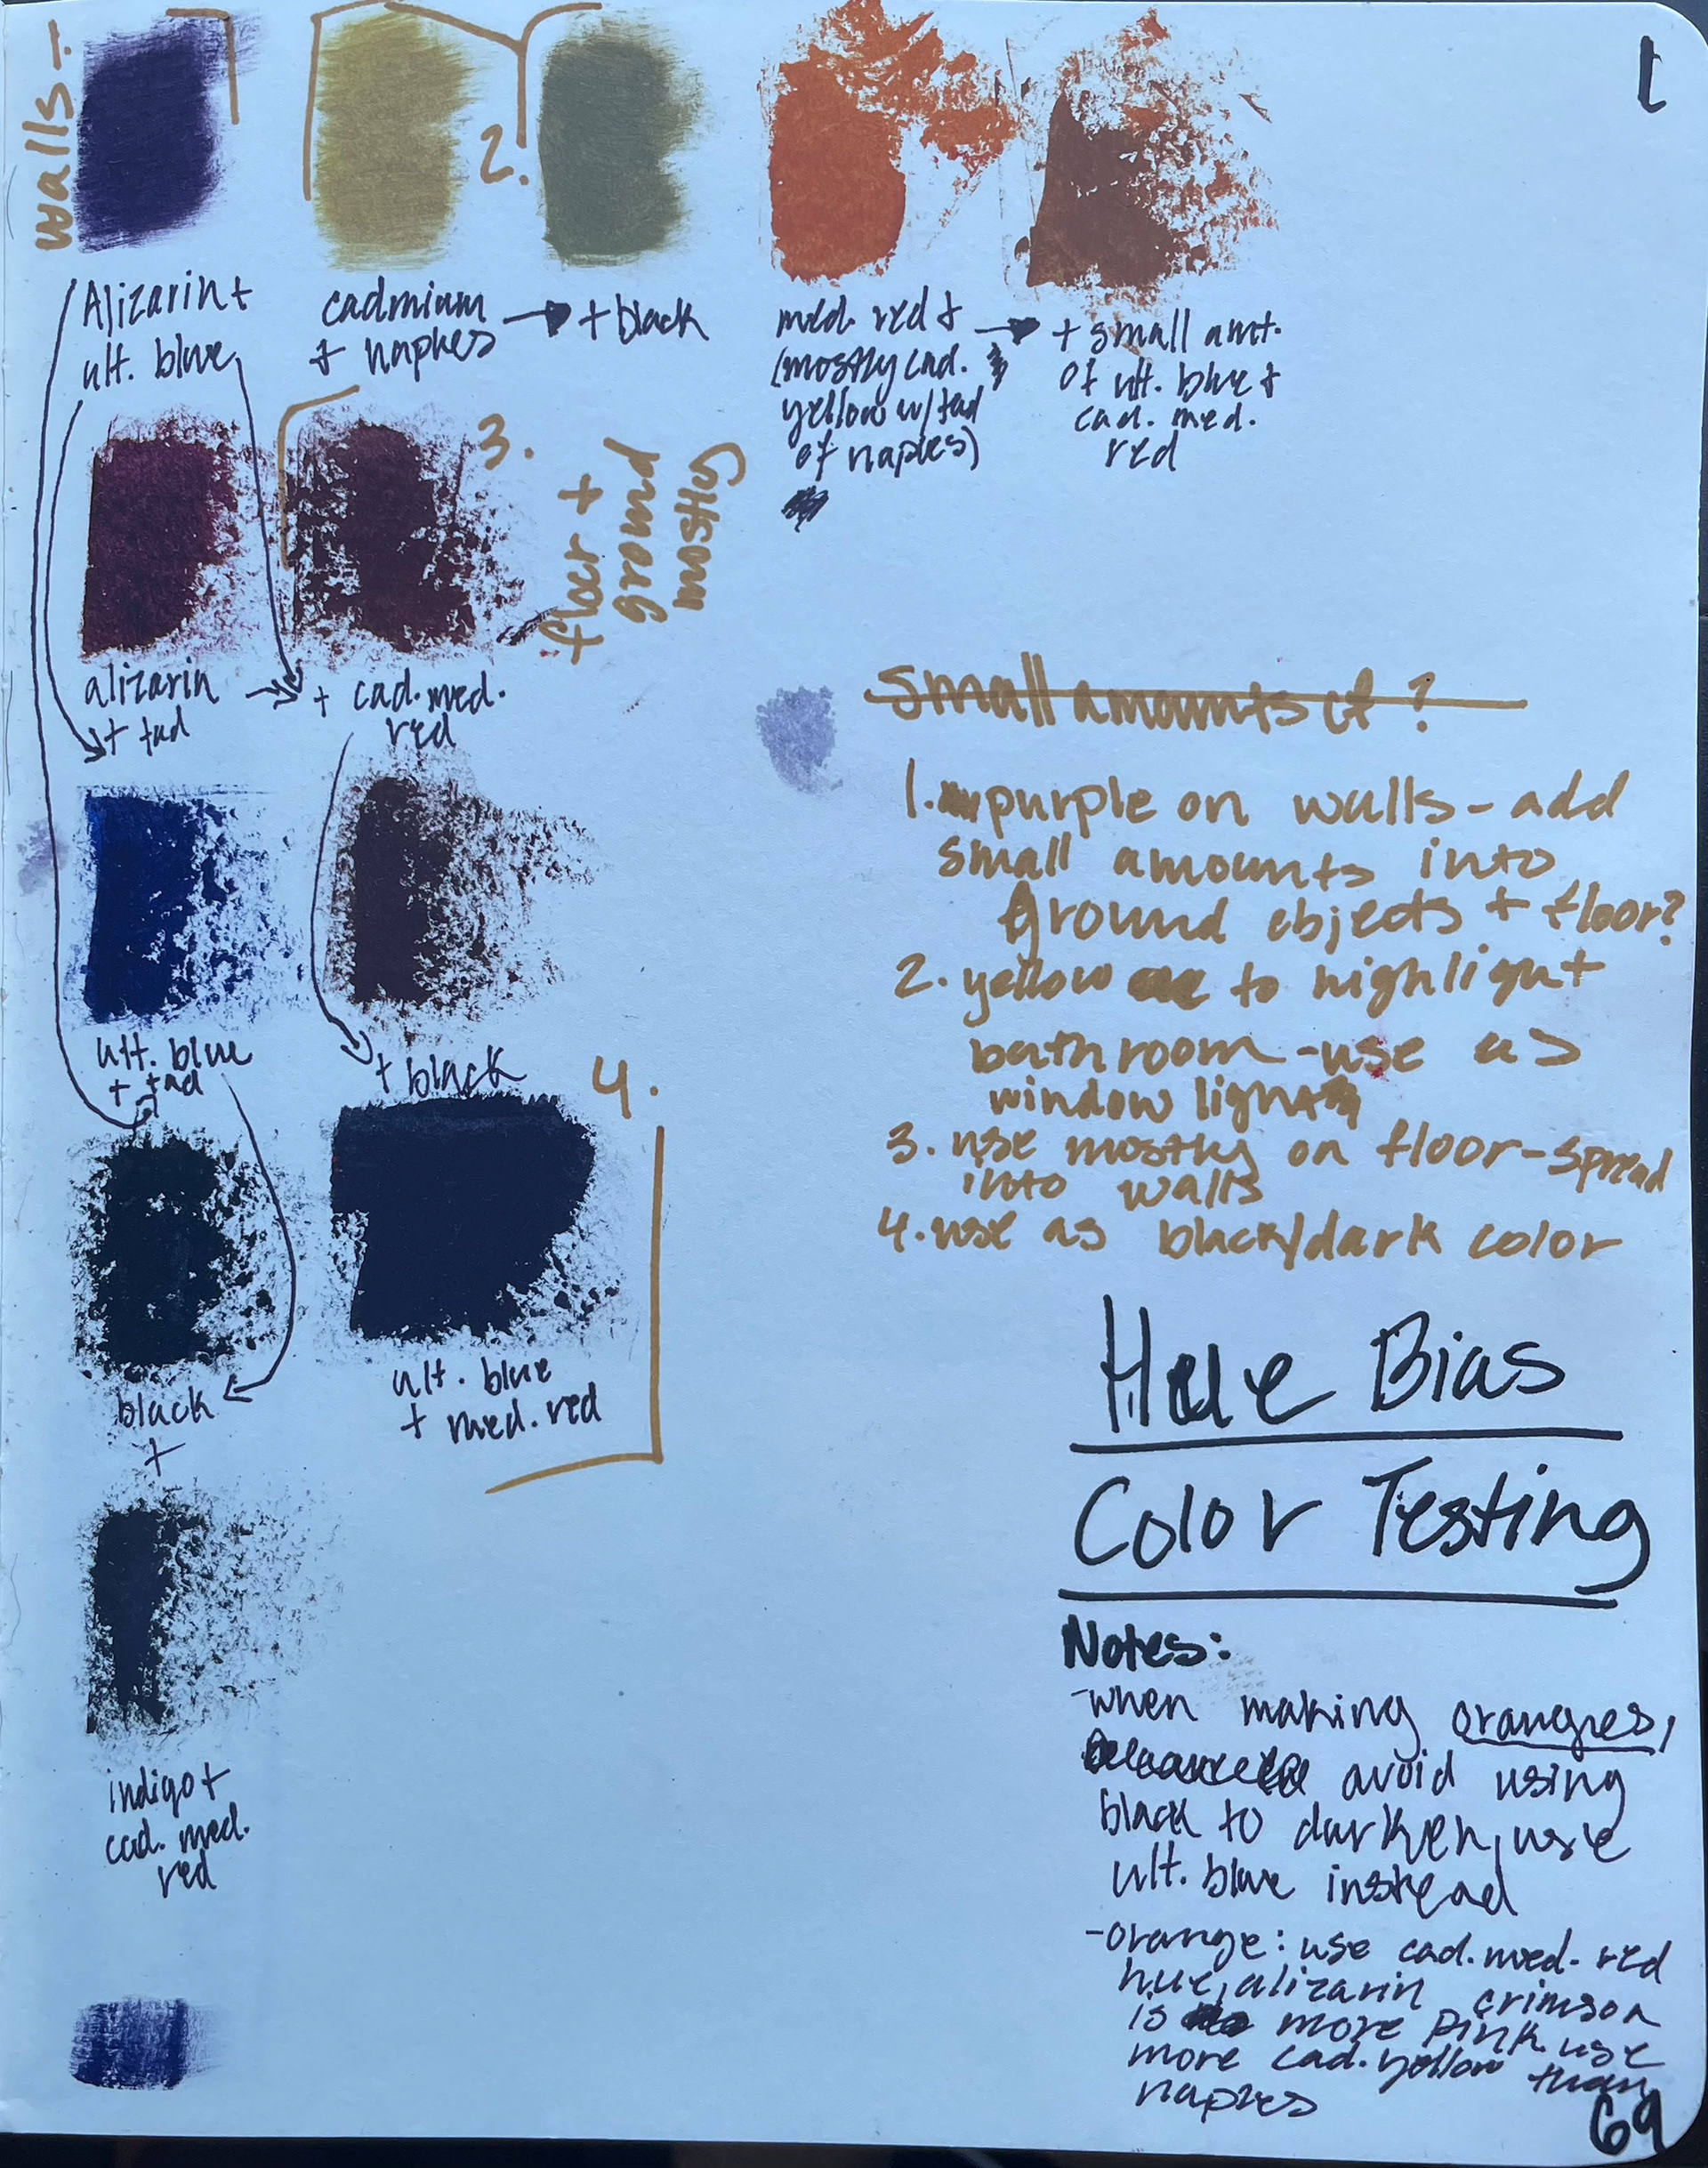 walls - 1
1
2.
Alizarin +
ult. blue
cadmium
+ naples
+ black
med. red +
(mostly cad.
yellow w/ tad
of naples)
+ small amt.
of ult. blue +
cad. med.
red
3.
floor +
ground
mostly
alizarin
+ tad
+ cad. med.
red
ult. blue
+ tad
+ black
4.
black
+
ult. blue
+ med. red
indigo +
cad. med.
red
small amounts of ?
1. purple on walls - add
small amounts into
ground objects + floor?
2. yellow to highlight
bathroom - use as
window light
3. use mostly on floor - spread
into walls
4. use as black/dark color
Hue Bias
Color Testing
Notes:
- when making oranges,
avoid using
black to darken, use
ult. blue instead
- orange: use cad. med. red
hue, alizarin crimson
is more pink. use
more cad. yellow than
naples
69